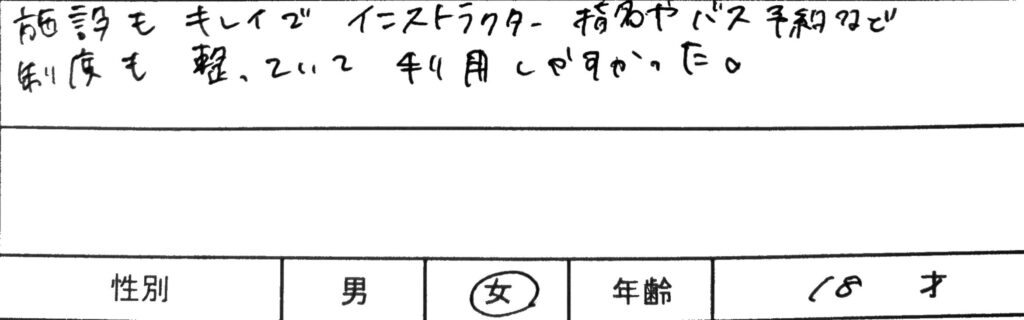 施設もキレイで インストラクター指名やバス予約など
制度も整っていて利用しやすかった。
性別 男 女 年齢 18才